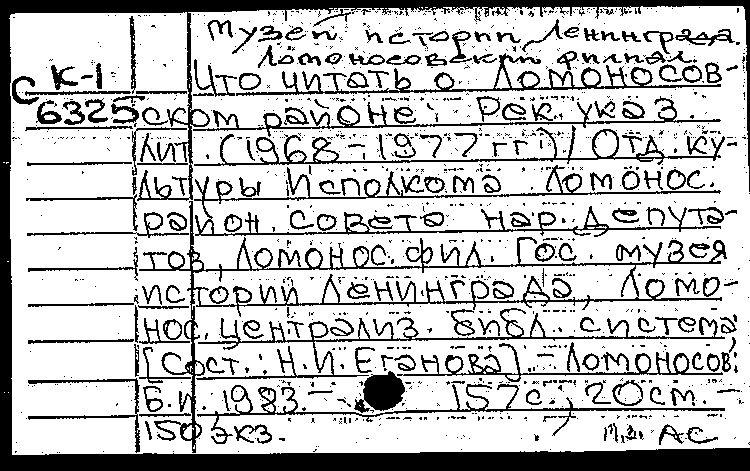 Музей истории Ленинграда.
Ломоносовский филиал
С К-1 Что читать о Ломоносов-
6325 ском районе: Рек. указ.
лит. (1968-1977 гг.) / Отд. ку-
льтуры Исполкома Ломонос.
район. совета нар. депута-
тов, Ломонос. фил. Гос. музея
истории Ленинграда, Ломо-
нос. централиз. библ. система;
[Сост.: Н.И. Еганова]. - Ломоносов:
Б.и., 1983. - 157 с.; 20 см. -
150 экз.
АС